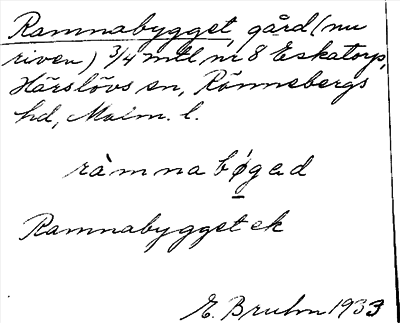 Ramnabygget, gård (nu
riven) 3/4 mtl nr 8 Eskatorp,
Härslövs sn, Rönnebergs
hd, Malm. l.
ràmnabø̱gəd
Ramnabygget ek
E. Bruhn 1933